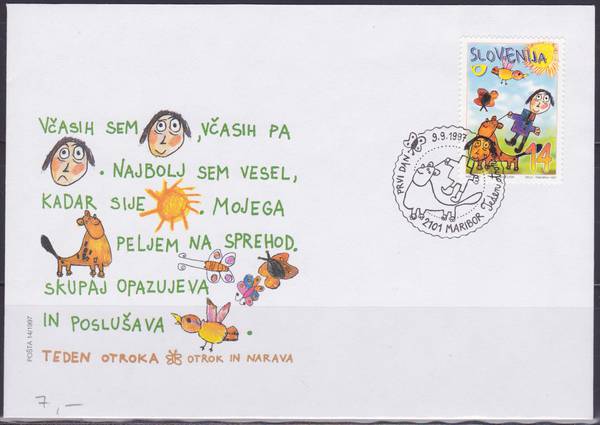 VČASIH SEM , VČASIH PA
. NAJBOLJ SEM VESEL,
KADAR SIJE . MOJEGA
PELJEM NA SPREHOD.
SKUPAJ OPAZUJEVA
IN POSLUŠAVA .
TEDEN OTROKA OTROK IN NARAVA
POŠTA 14/1997
7,-
SLOVENIJA
14
PRVI DAN
9.9.1997
2101 MARIBOR
Teden otroka